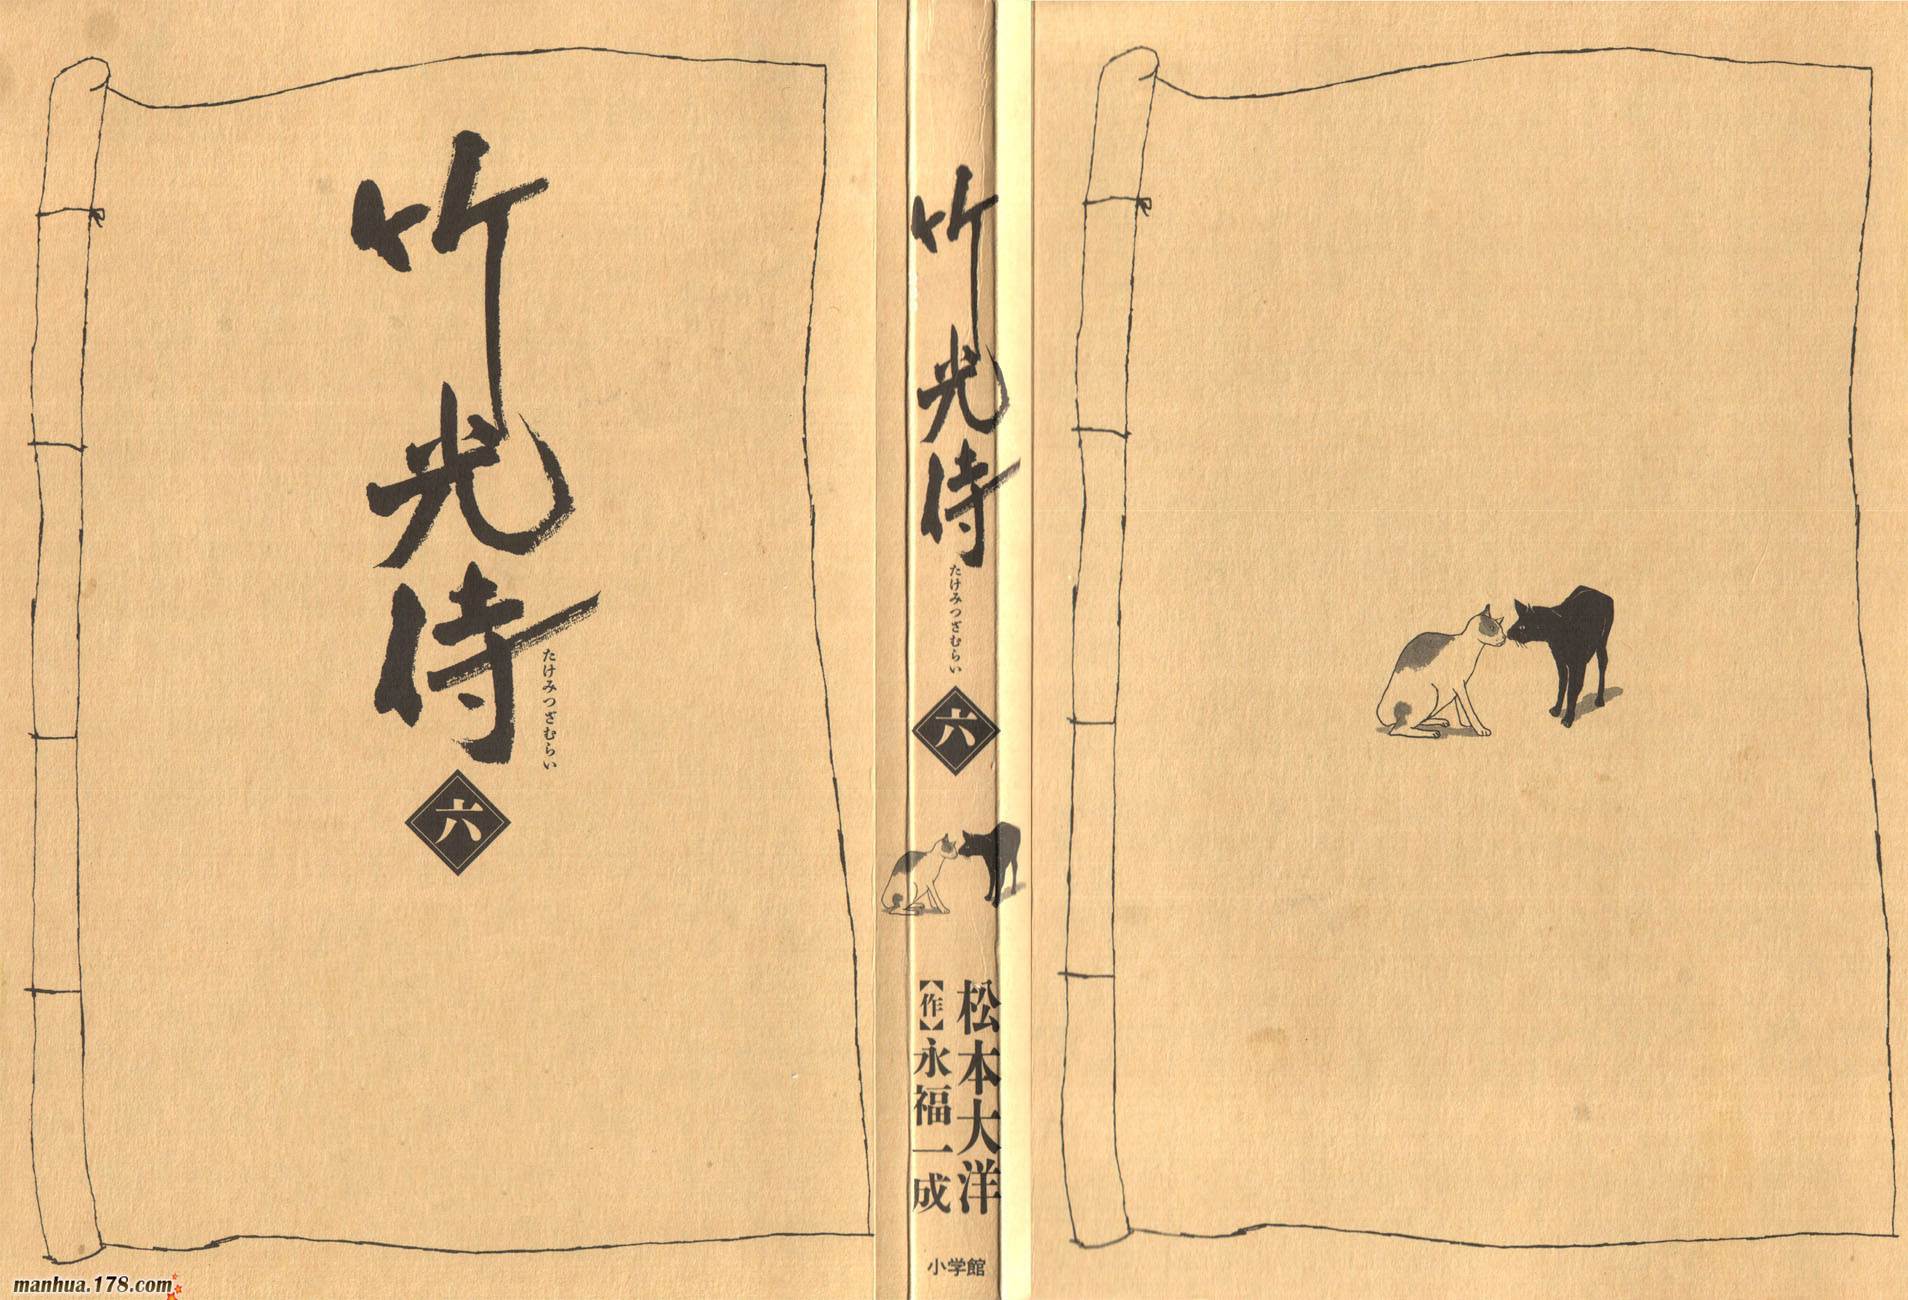 竹光侍
たけみつざむらい
六
竹光侍
たけみつざむらい
六
松本大洋
【作】永福一成
小学館
manhua.178.com